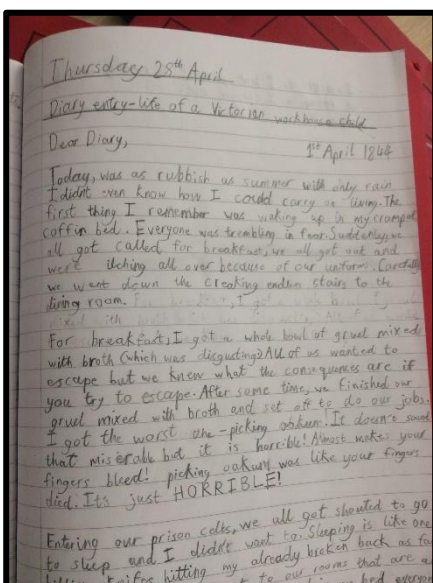 Thursday 28th April
Diary entry-life of a Victorian workhouse child
Dear Diary,
1st April 1844
Today, was as rubbish as summer with only rain
I didn't even know how I could carry on living. The
first thing I remember was waking up in my cramped
coffin bed. Everyone was trembling in fear. Suddenly, we
all got called for breakfast, we all got out and
were itching all over because of our uniform. Carefully
we went down the creaking endless stairs to the
dining room.
For breakfast, I got a whole bowl of gruel mixed
with broth (which was disgusting) All of us wanted to
escape but we knew what the consequences are if
you try to escape. After some time, we finished our
gruel mixed with broth and set off to do our jobs.
I got the worst one-picking oakum! It doesn't sound
that miserable but it is horrible! Almost makes your
fingers bleed! picking oakum was like your fingers
died. It's just HORRIBLE!
Entering our prison cells, we all got shouted to go
to sleep and I didn't want to. Sleeping is like one
knifes hitting my already broken back as
to our rooms that are a
bed every